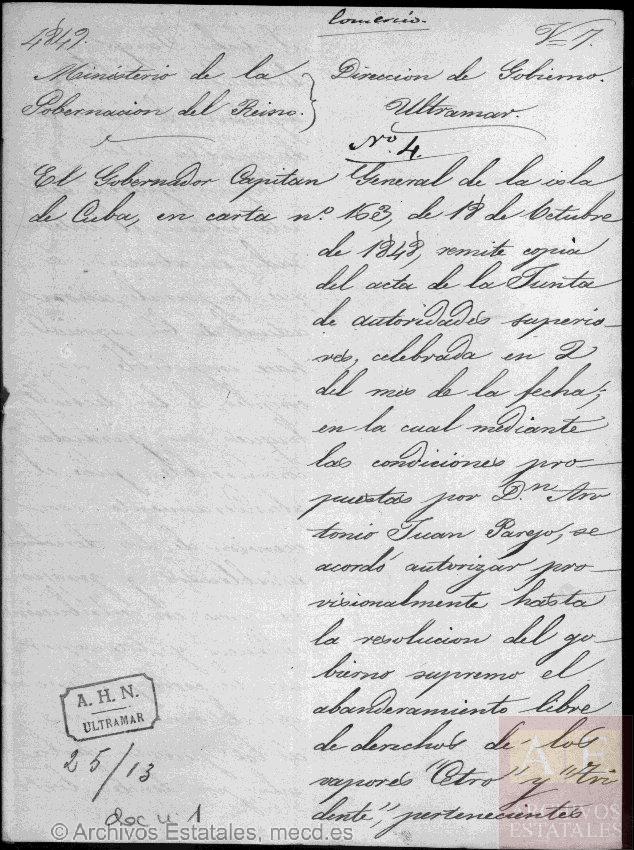 Comercio.
1849.
V=7.
Ministerio de la
Gobernacion del Reino.
Direccion de Gobierno.
Ultramar.
Nº 4.
El Gobernador Capitan General de la isla
de Cuba, en carta n.º 163, de 18 de Octubre
de 1848, remite copia
del acta de la Junta
de autoridades superio-
res, celebrada en 2
del mes de la fecha;
en la cual mediante
las condiciones pro-
puestas por D.n An-
tonio Juan Parejo, se
acordó autorizar pro-
visionalmente hasta
la resolucion del go-
bierno supremo el
abanderamiento libre
de derechos de los
vapores "Cetro" y "Tri-
dente", pertenecientes
A. H. N.
ULTRAMAR
25/13
doc n 1
AE
ARCHIVOS
ESTATALES
© Archivos Estatales, mecd.es